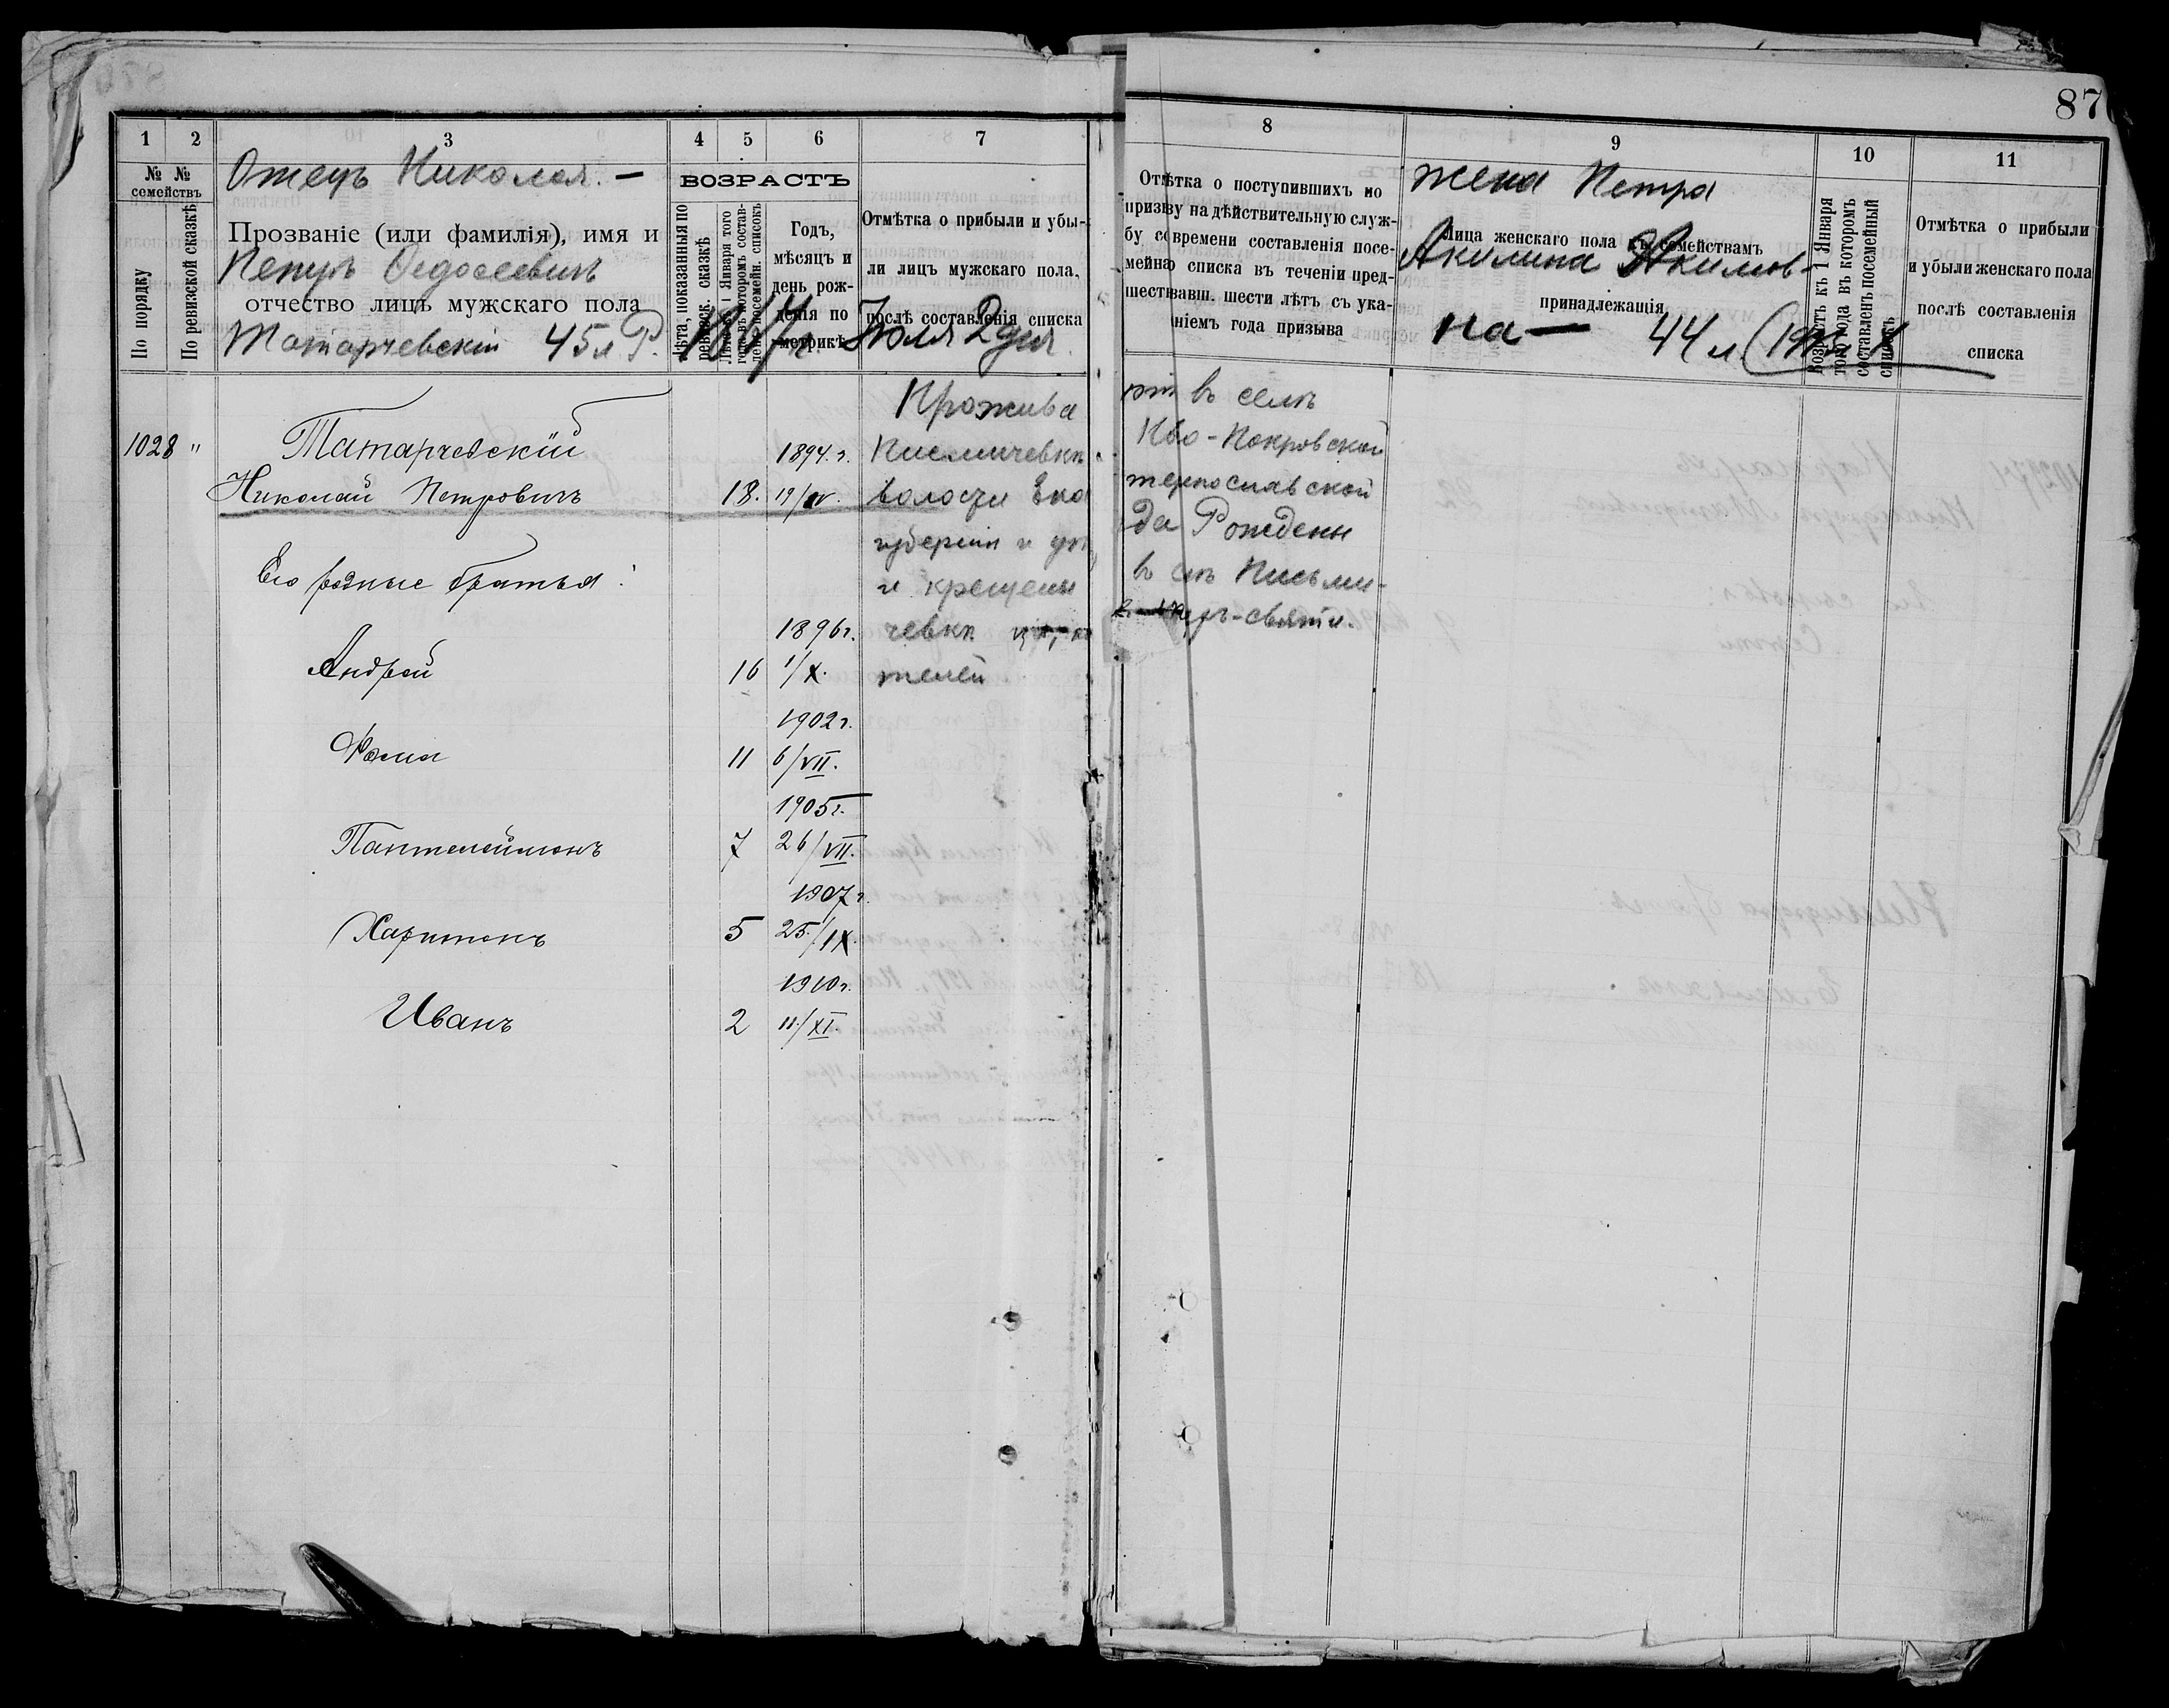 87
1 2 3 4 5 6 7
№ № семействъ
По порядку
По ревизской сказкѣ
Отецъ Николая. —
Прозваніе (или фамилія), имя и
Петръ Федосеевичъ
отчество лицъ мужскаго пола
Татарчевскій 45 л Р.
ВОЗРАСТЪ
Лѣта, показанныя по ревизск. сказкѣ
Годъ,
мѣсяцъ и
день рож-
денія по
метрикѣ
Отмѣтка о прибыли и убы-
ли лицъ мужскаго пола,
послѣ составленія списка
Юля 2 дня
8 9 10 11
Отмѣтка о поступившихъ по
призыву на дѣйствительную служ-
бу со времени составленія посе-
мейнаго списка въ теченіи пред-
шествовавш. шести лѣтъ съ ука-
ніемъ года призыва
жена Петра
Лица женскаго пола къ семействамъ
Акилина Акимов-
принадлежащія
на — 44 л
Возрастъ къ 1 Января
того года въ которомъ
составленъ посемейный
списокъ
Отмѣтка о прибыли
и убыли женскаго пола
послѣ составленія
списка
1028 " Татарчевскій 1894. г.
Николай Петровичъ 18. 19/
Его родные братья:
1896 г.
Андрей 16 1/X.
1902 г.
Фома 11 6/VII.
1905 г.
Пантелеймонъ 7 26/VII.
1907 г.
Харитонъ 5 25/IX.
1910 г.
Иванъ 2 11/XI.
Прожива ют въ селѣ
Писмичевкѣ Ново-Покровской
волости Ека теринославской
губерніи и уѣз да Рождены
и крещены в смъ Письми-
чевкѣ церк -святи.
телей